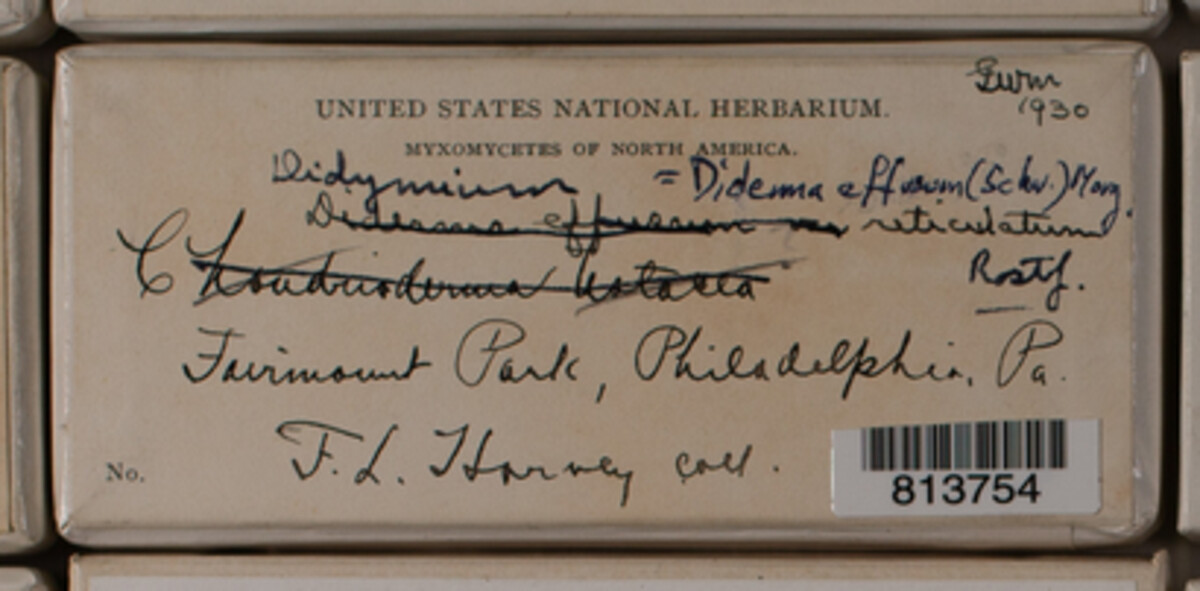 UNITED STATES NATIONAL HERBARIUM.
1930
MYXOMYCETES OF NORTH AMERICA.
Didymium = Diderma effusum (Schw.) Morg.
Diderma effusum reticulatum
Chondrioderma Rostf.
Fairmount Park, Philadelphia, Pa.
No. F. L. Harvey coll.
813754